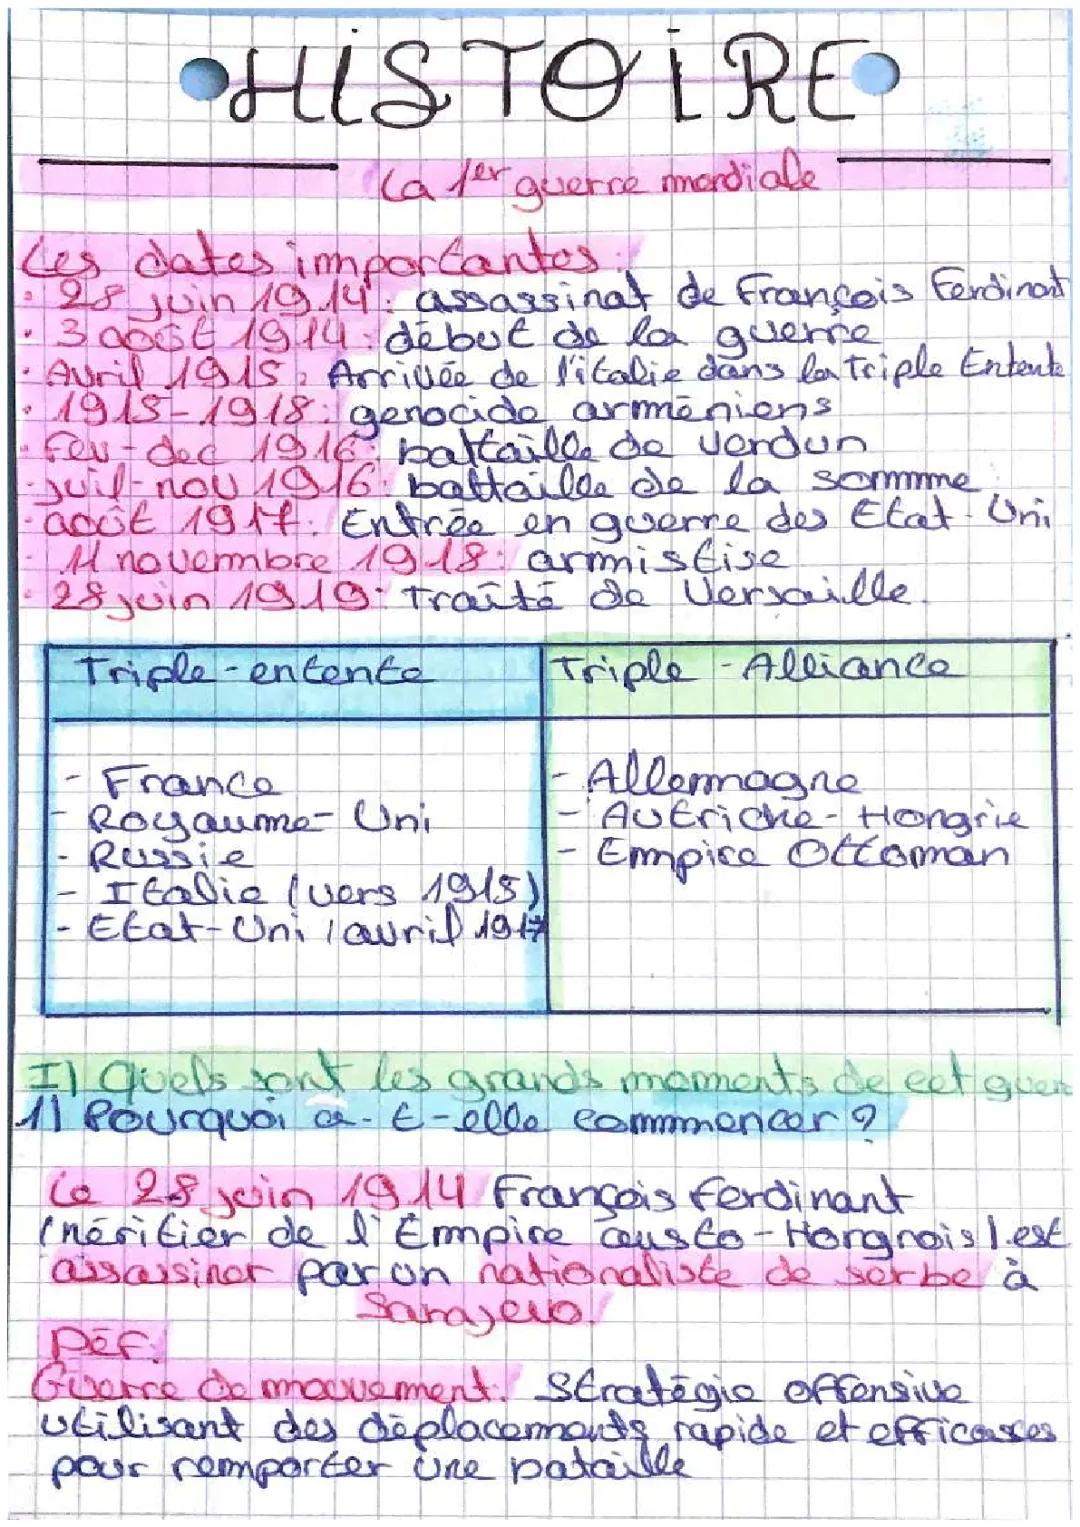 HiSTOiRE
La 1er guerre mondiale
Les dates importantes :
• 28 juin 1914 : assassinat de François Ferdinant
• 3 août 1914 : début de la guerre
• Avril 1915 : Arrivée de l'italie dans la Triple Entente
• 1915-1918 : genocide arméniens
• Fev-dec 1916 : battaille de Verdun
• juil-nov 1916 : battaille de la somme
• août 1917 : Entrée en guerre des Etat-Uni
• 11 novembre 1918 : armistise
• 28 juin 1919 : traîté de Versaille.
Triple-entente Triple-Alliance
- France - Allemagne
- Royaume-Uni - Autriche-Hongrie
- Russie - Empire Ottoman
- Italie (vers 1915)
- Etat-Uni (avril 1917
I) Quels sont les grands moments de cet guer
1) Pourquoi a-t-elle commencer ?
Le 28 juin 1914 François ferdinant
(héritier de l'Empire austo-Hongrois) est
assassiner par un nationaliste de serbe à
Sarajevo.
Déf:
Guerre de mouvement : Stratégie offensive
utilisant des déplacements rapide et efficases
pour remporter une bataille